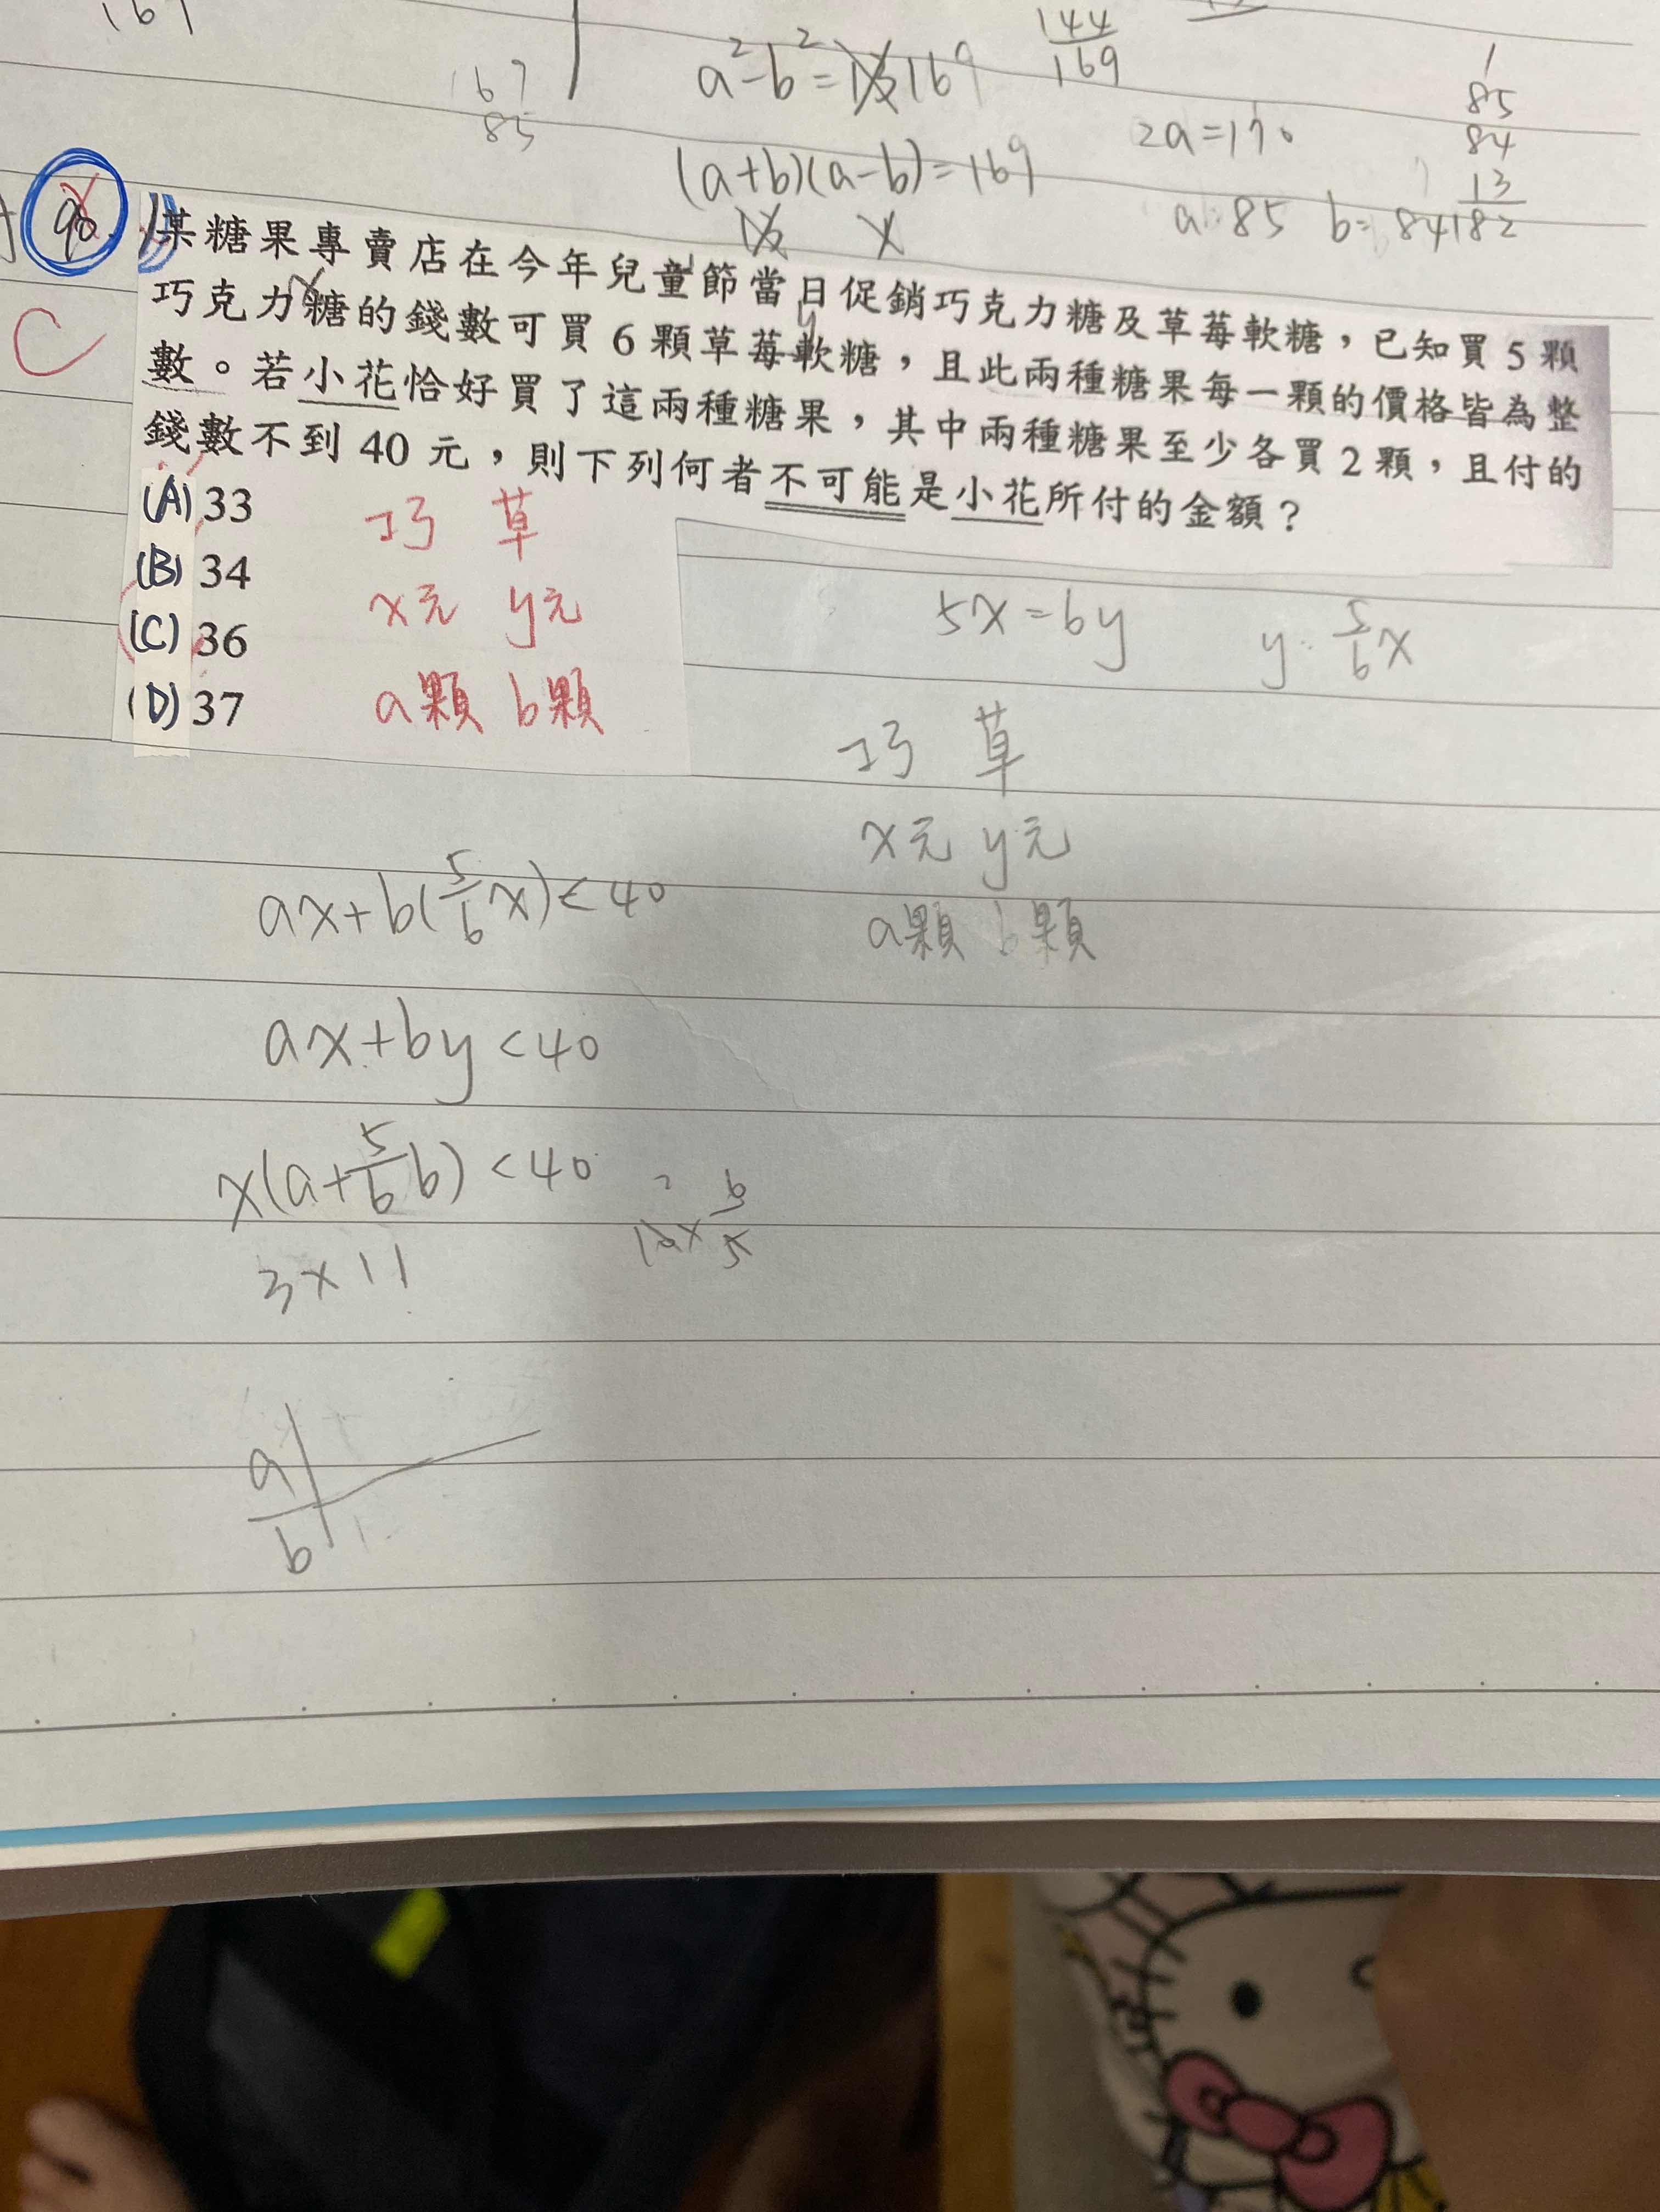 167
144
169
a²-b²=169
167
85
(a+b)(a-b)=169
2a=170
a=85 b=84
1
85
84
13
182
90.
某糖果專賣店在今年兒童節當日促銷巧克力糖及草莓軟糖，已知買5顆
巧克力糖的錢數可買6顆草莓軟糖，且此兩種糖果每一顆的價格皆為整
數。若小花恰好買了這兩種糖果，其中兩種糖果至少各買2顆，且付的
錢數不到40元，則下列何者不可能是小花所付的金額？
C
x
y
(A) 33
(B) 34
(C) 36
(D) 37
巧 草
x元 y元
a顆 b顆
5x=6y
y=5/6x
巧 草
x元 y元
a顆 b顆
ax+b(5/6x)<40
ax+by<40
x(a+5/6b)<40
3×11
a
b